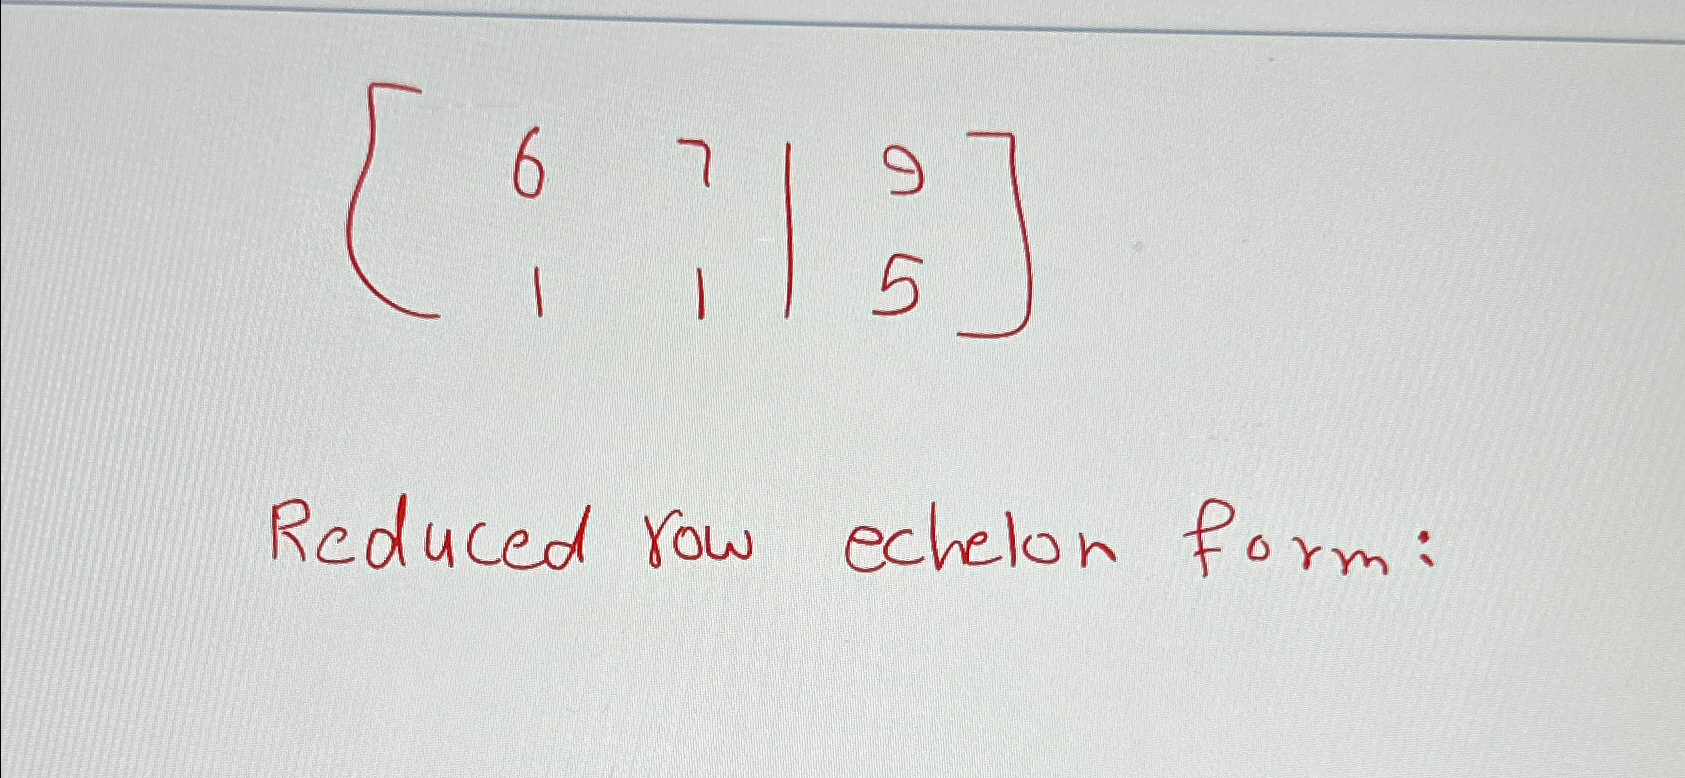 6 7 | 9
1 1 | 5
Reduced row echelon form: